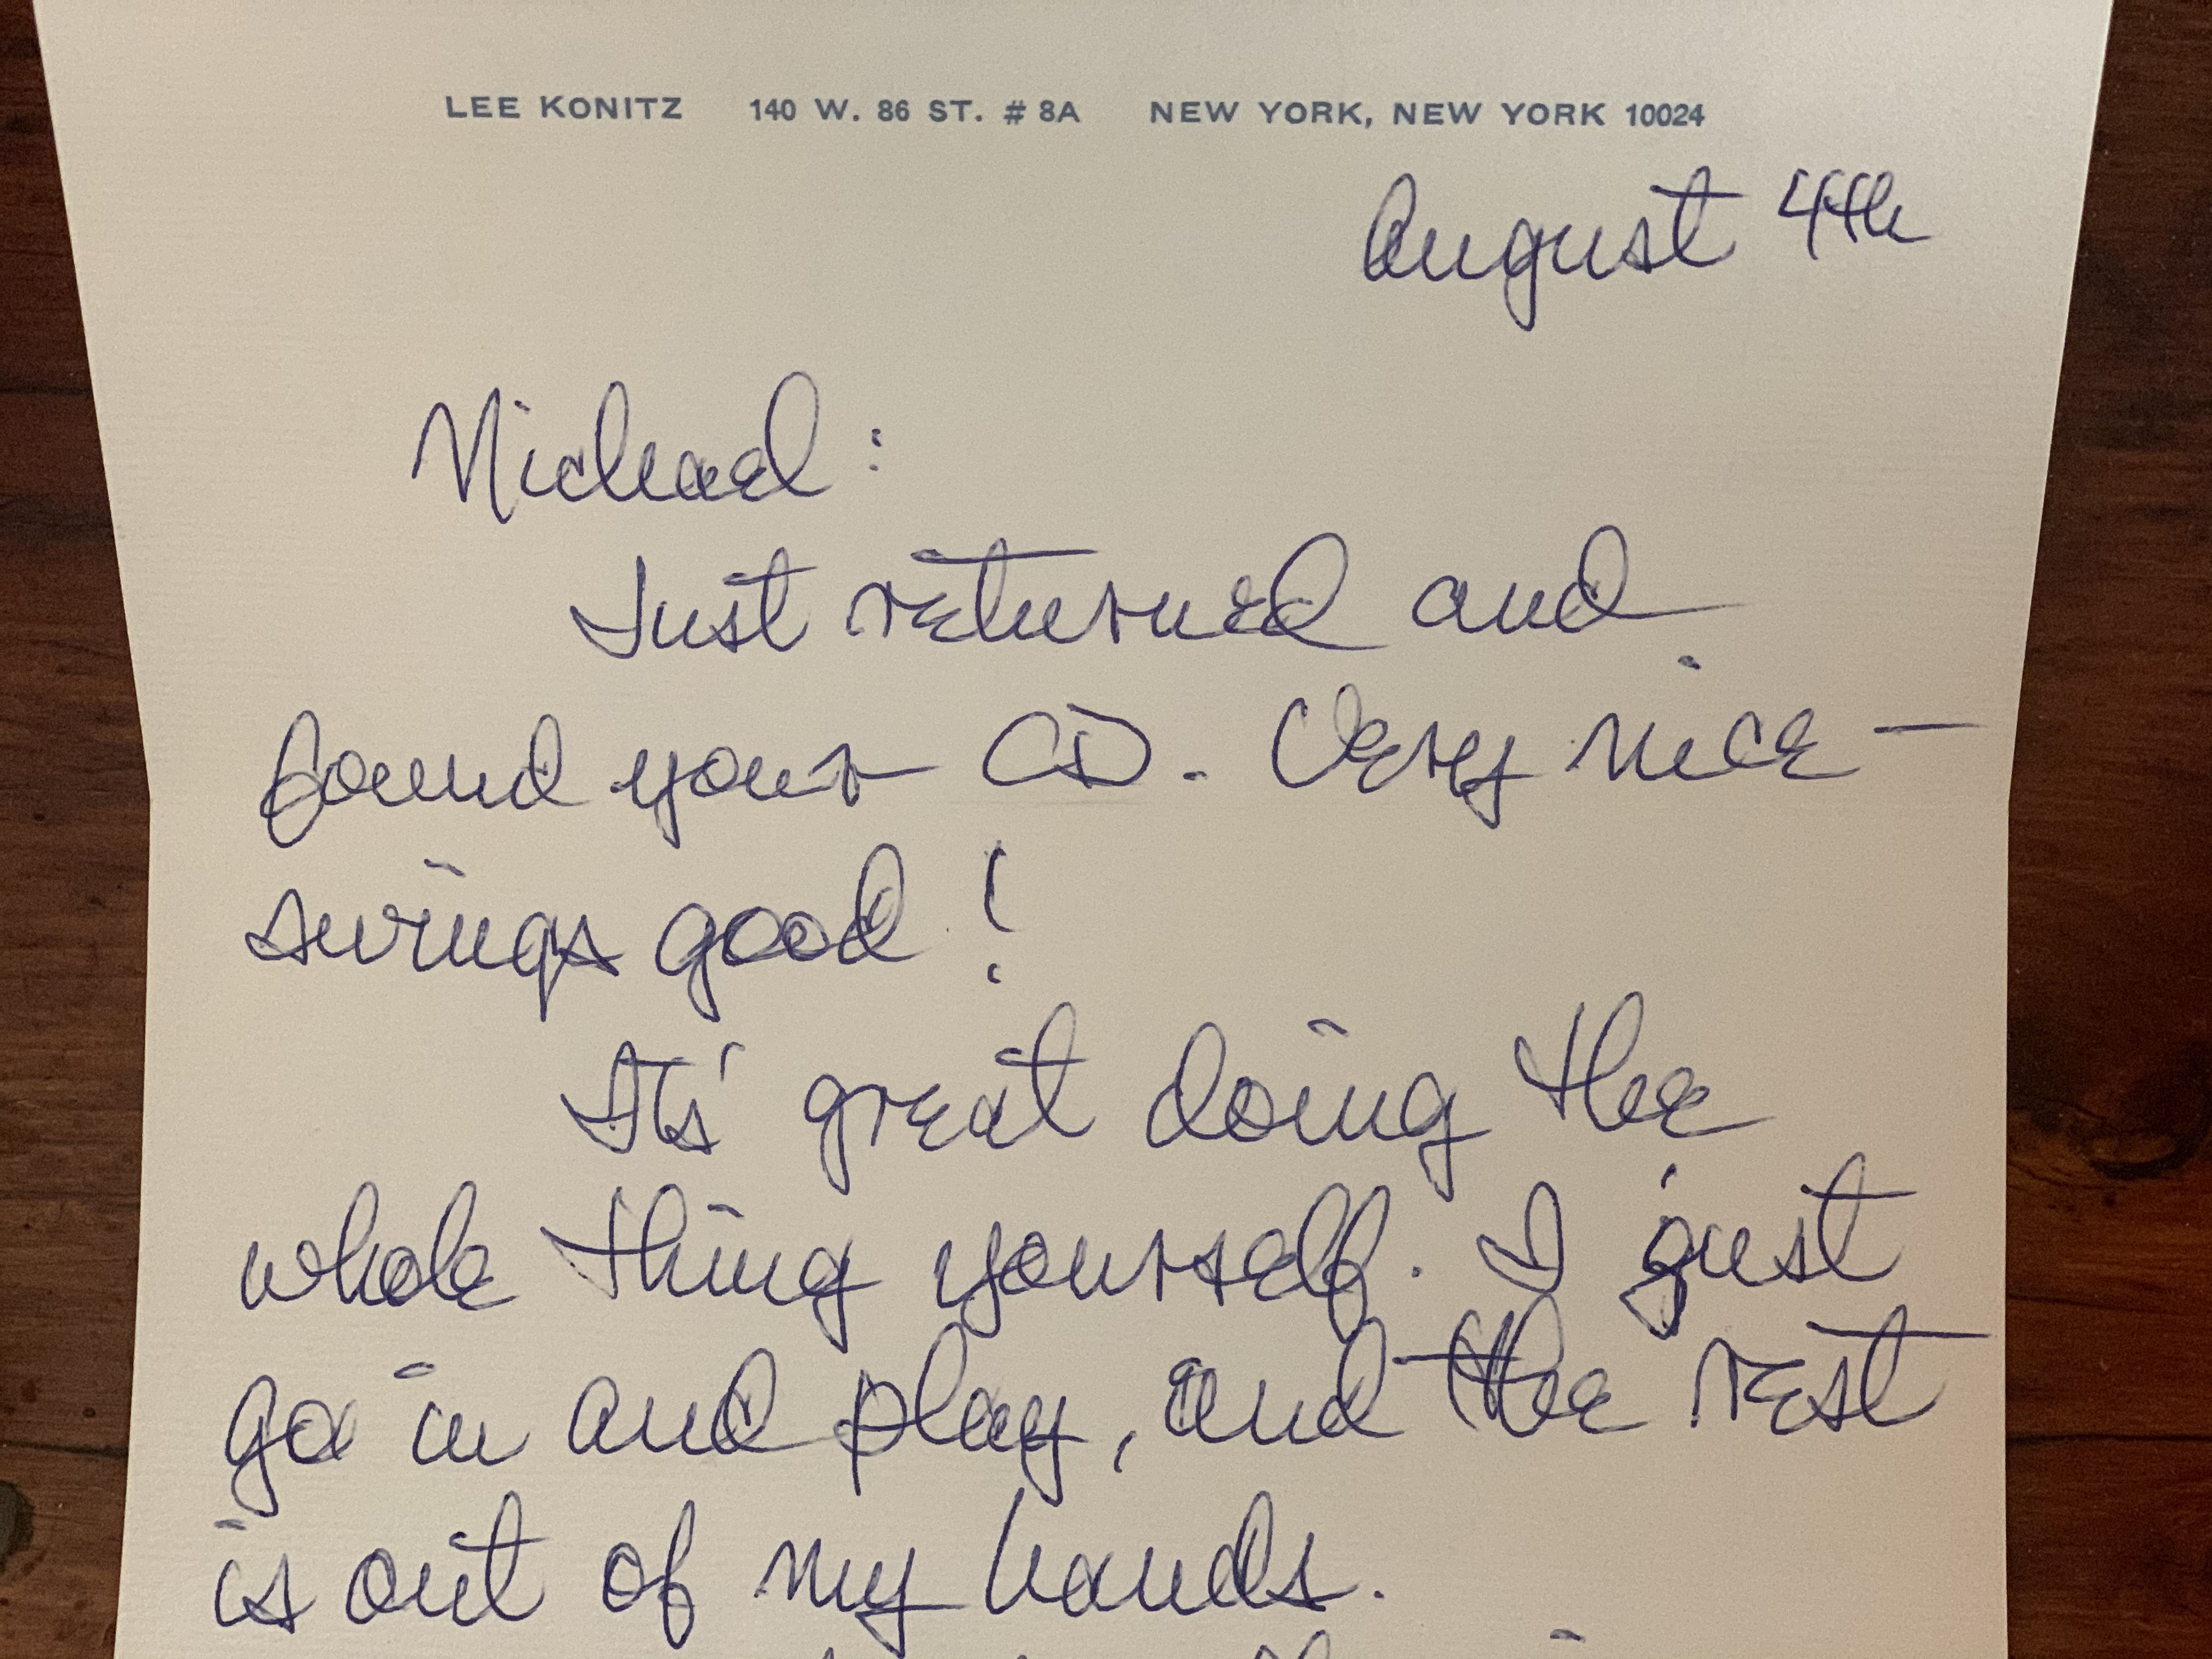 LEE KONITZ 140 W. 86 ST. # 8A NEW YORK, NEW YORK 10024
August 4th
Michael:
Just returned and
found your CD. Very nice –
swings good!
Its' great doing the
whole thing yourself. I just
go in and play, and the rest
is out of my hands.